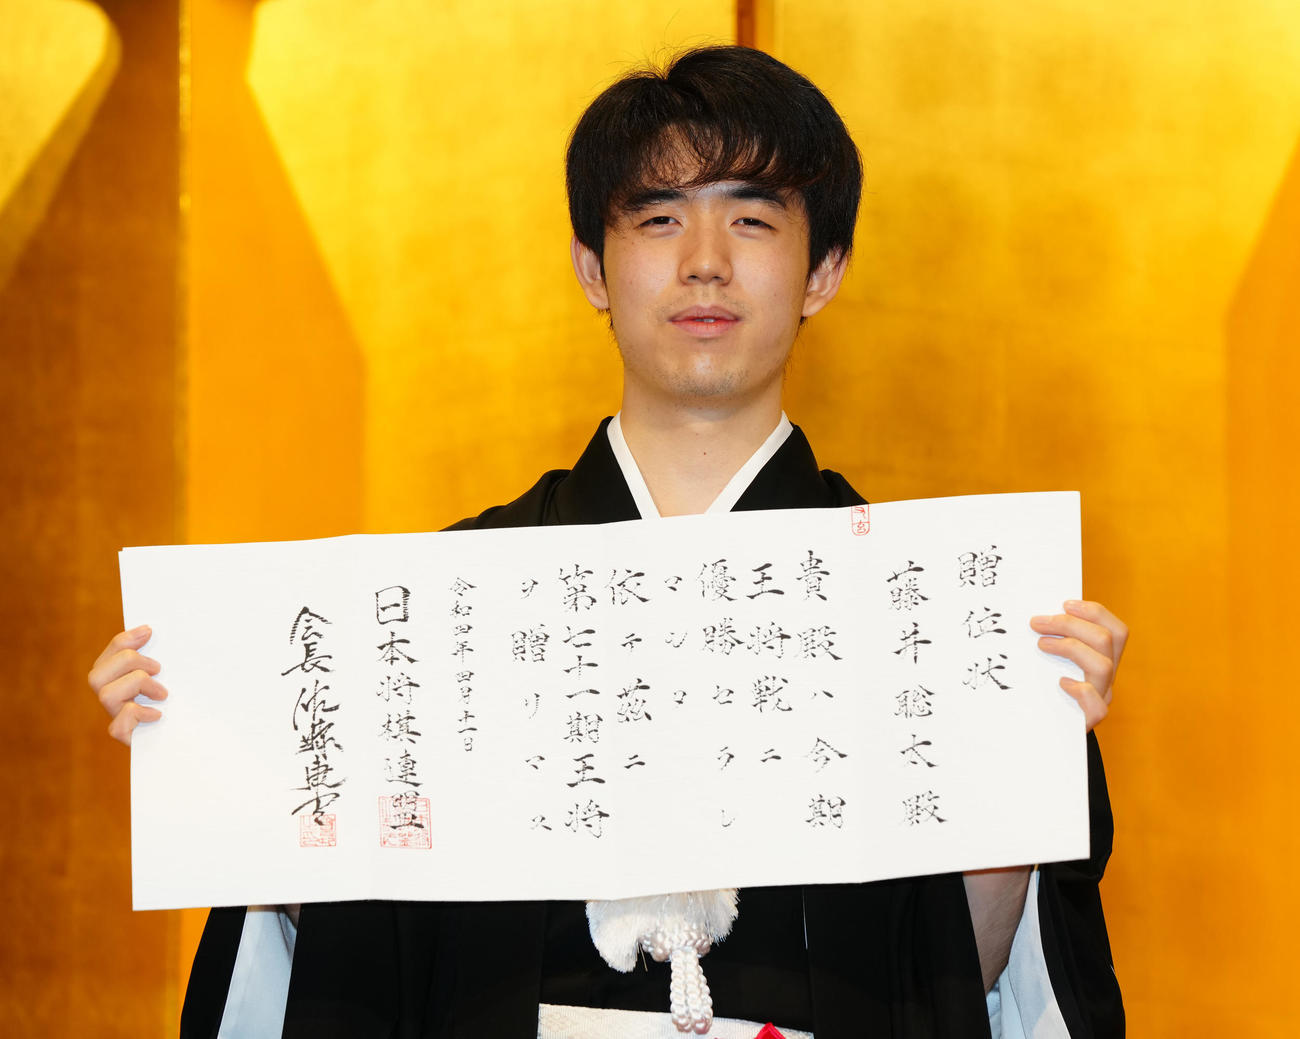 贈位状
藤井聡太殿
貴殿ハ今期
王将戦ニ
優勝セラレ
マシタ
依テ茲ニ
第七十一期王将
ヲ贈リマス
令和四年四月十二日
日本将棋連盟
会長佐藤康光